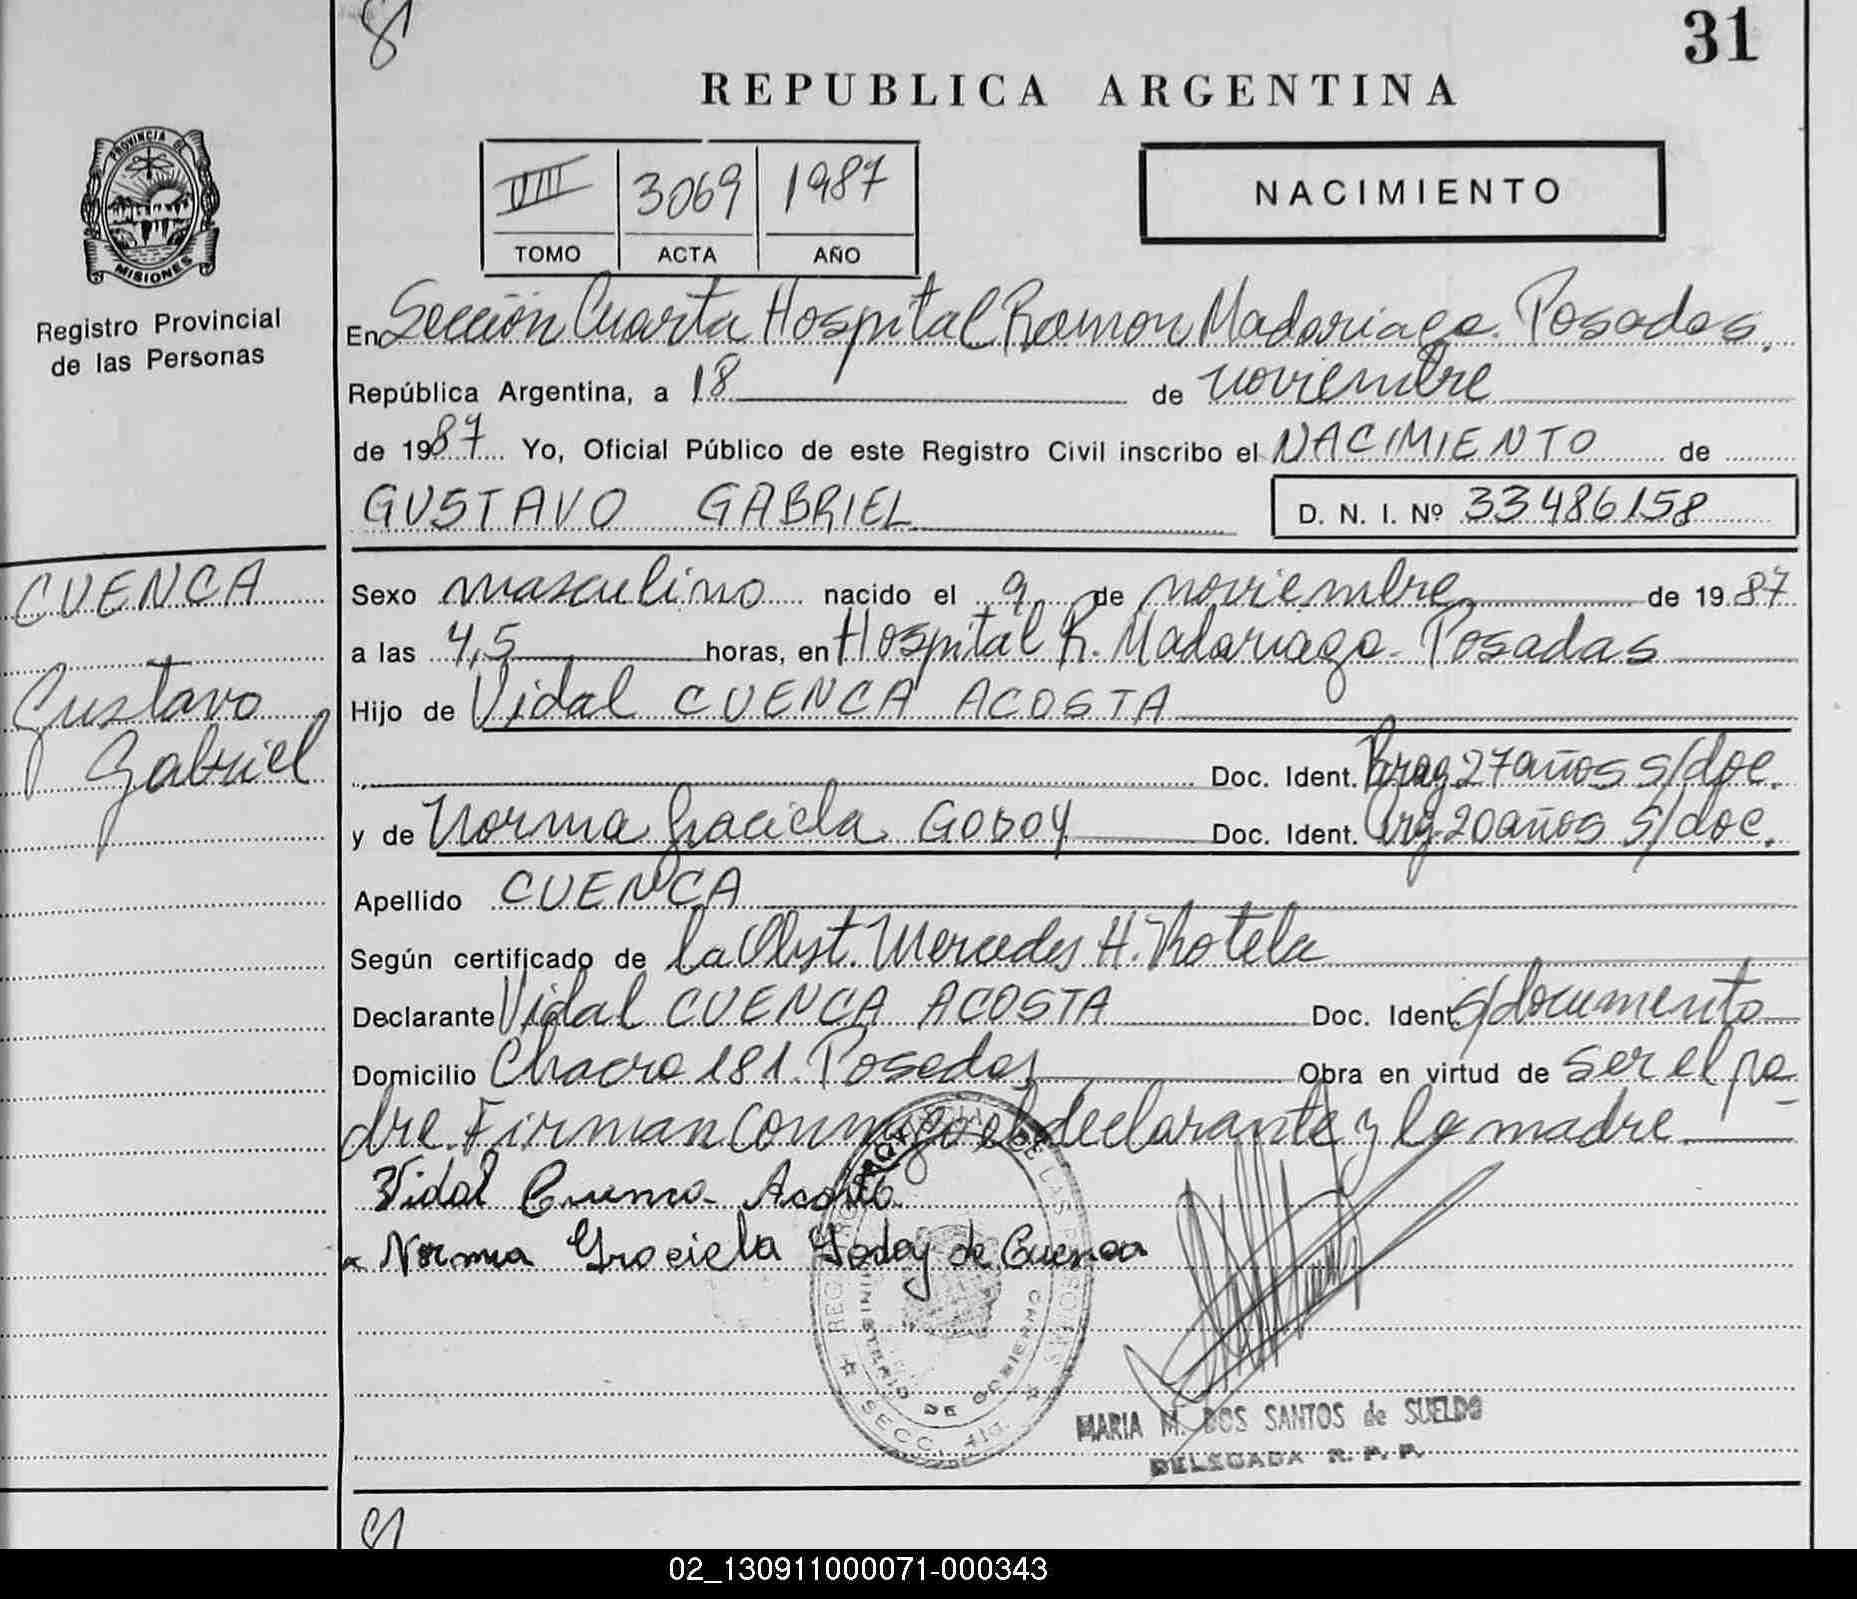 31
REPUBLICA ARGENTINA
PROVINCIA DE
MISIONES
Registro Provincial
de las Personas
VIII 3069 1987
TOMO ACTA AÑO
NACIMIENTO
En Sección Cuarta Hospital Ramon Madariaga. Posadas.
República Argentina, a 18 de noviembre
de 1987. Yo, Oficial Público de este Registro Civil inscribo el NACIMIENTO de
GUSTAVO GABRIEL D. N. I. Nº 33486158
CUENCA
Gustavo
Gabriel
Sexo masculino nacido el 9 de noviembre de 1987
a las 4,5 horas, en Hospital R. Madariaga. Posadas
Hijo de Vidal CUENCA ACOSTA
Doc. Ident. 27 años s/doc.
y de Norma Graciela GODOY Doc. Ident. Arg. 20 años s/doc.
Apellido CUENCA
Según certificado de la Obst. Mercedes H. Rotela
Declarante Vidal CUENCA ACOSTA Doc. Ident. s/documento
Domicilio Chacra 181. Posadas Obra en virtud de ser el pa-
dre. Firman conmigo el declarante y la madre
Vidal Cuenca Acosta
Norma Graciela Godoy de Cuenca
MINISTERIO DE GOBIERNO
SECC. 4ta.
MARIA M. DOS SANTOS de SUELDO
DELEGADA R. P. P.
02_130911000071-000343